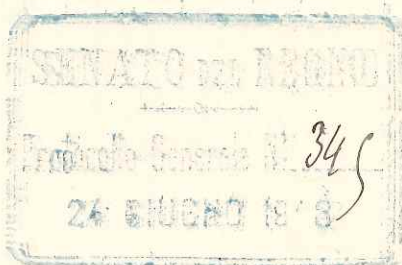 SENATO DEL REGNO
Protocollo Generale N. 345
24 GIUGNO